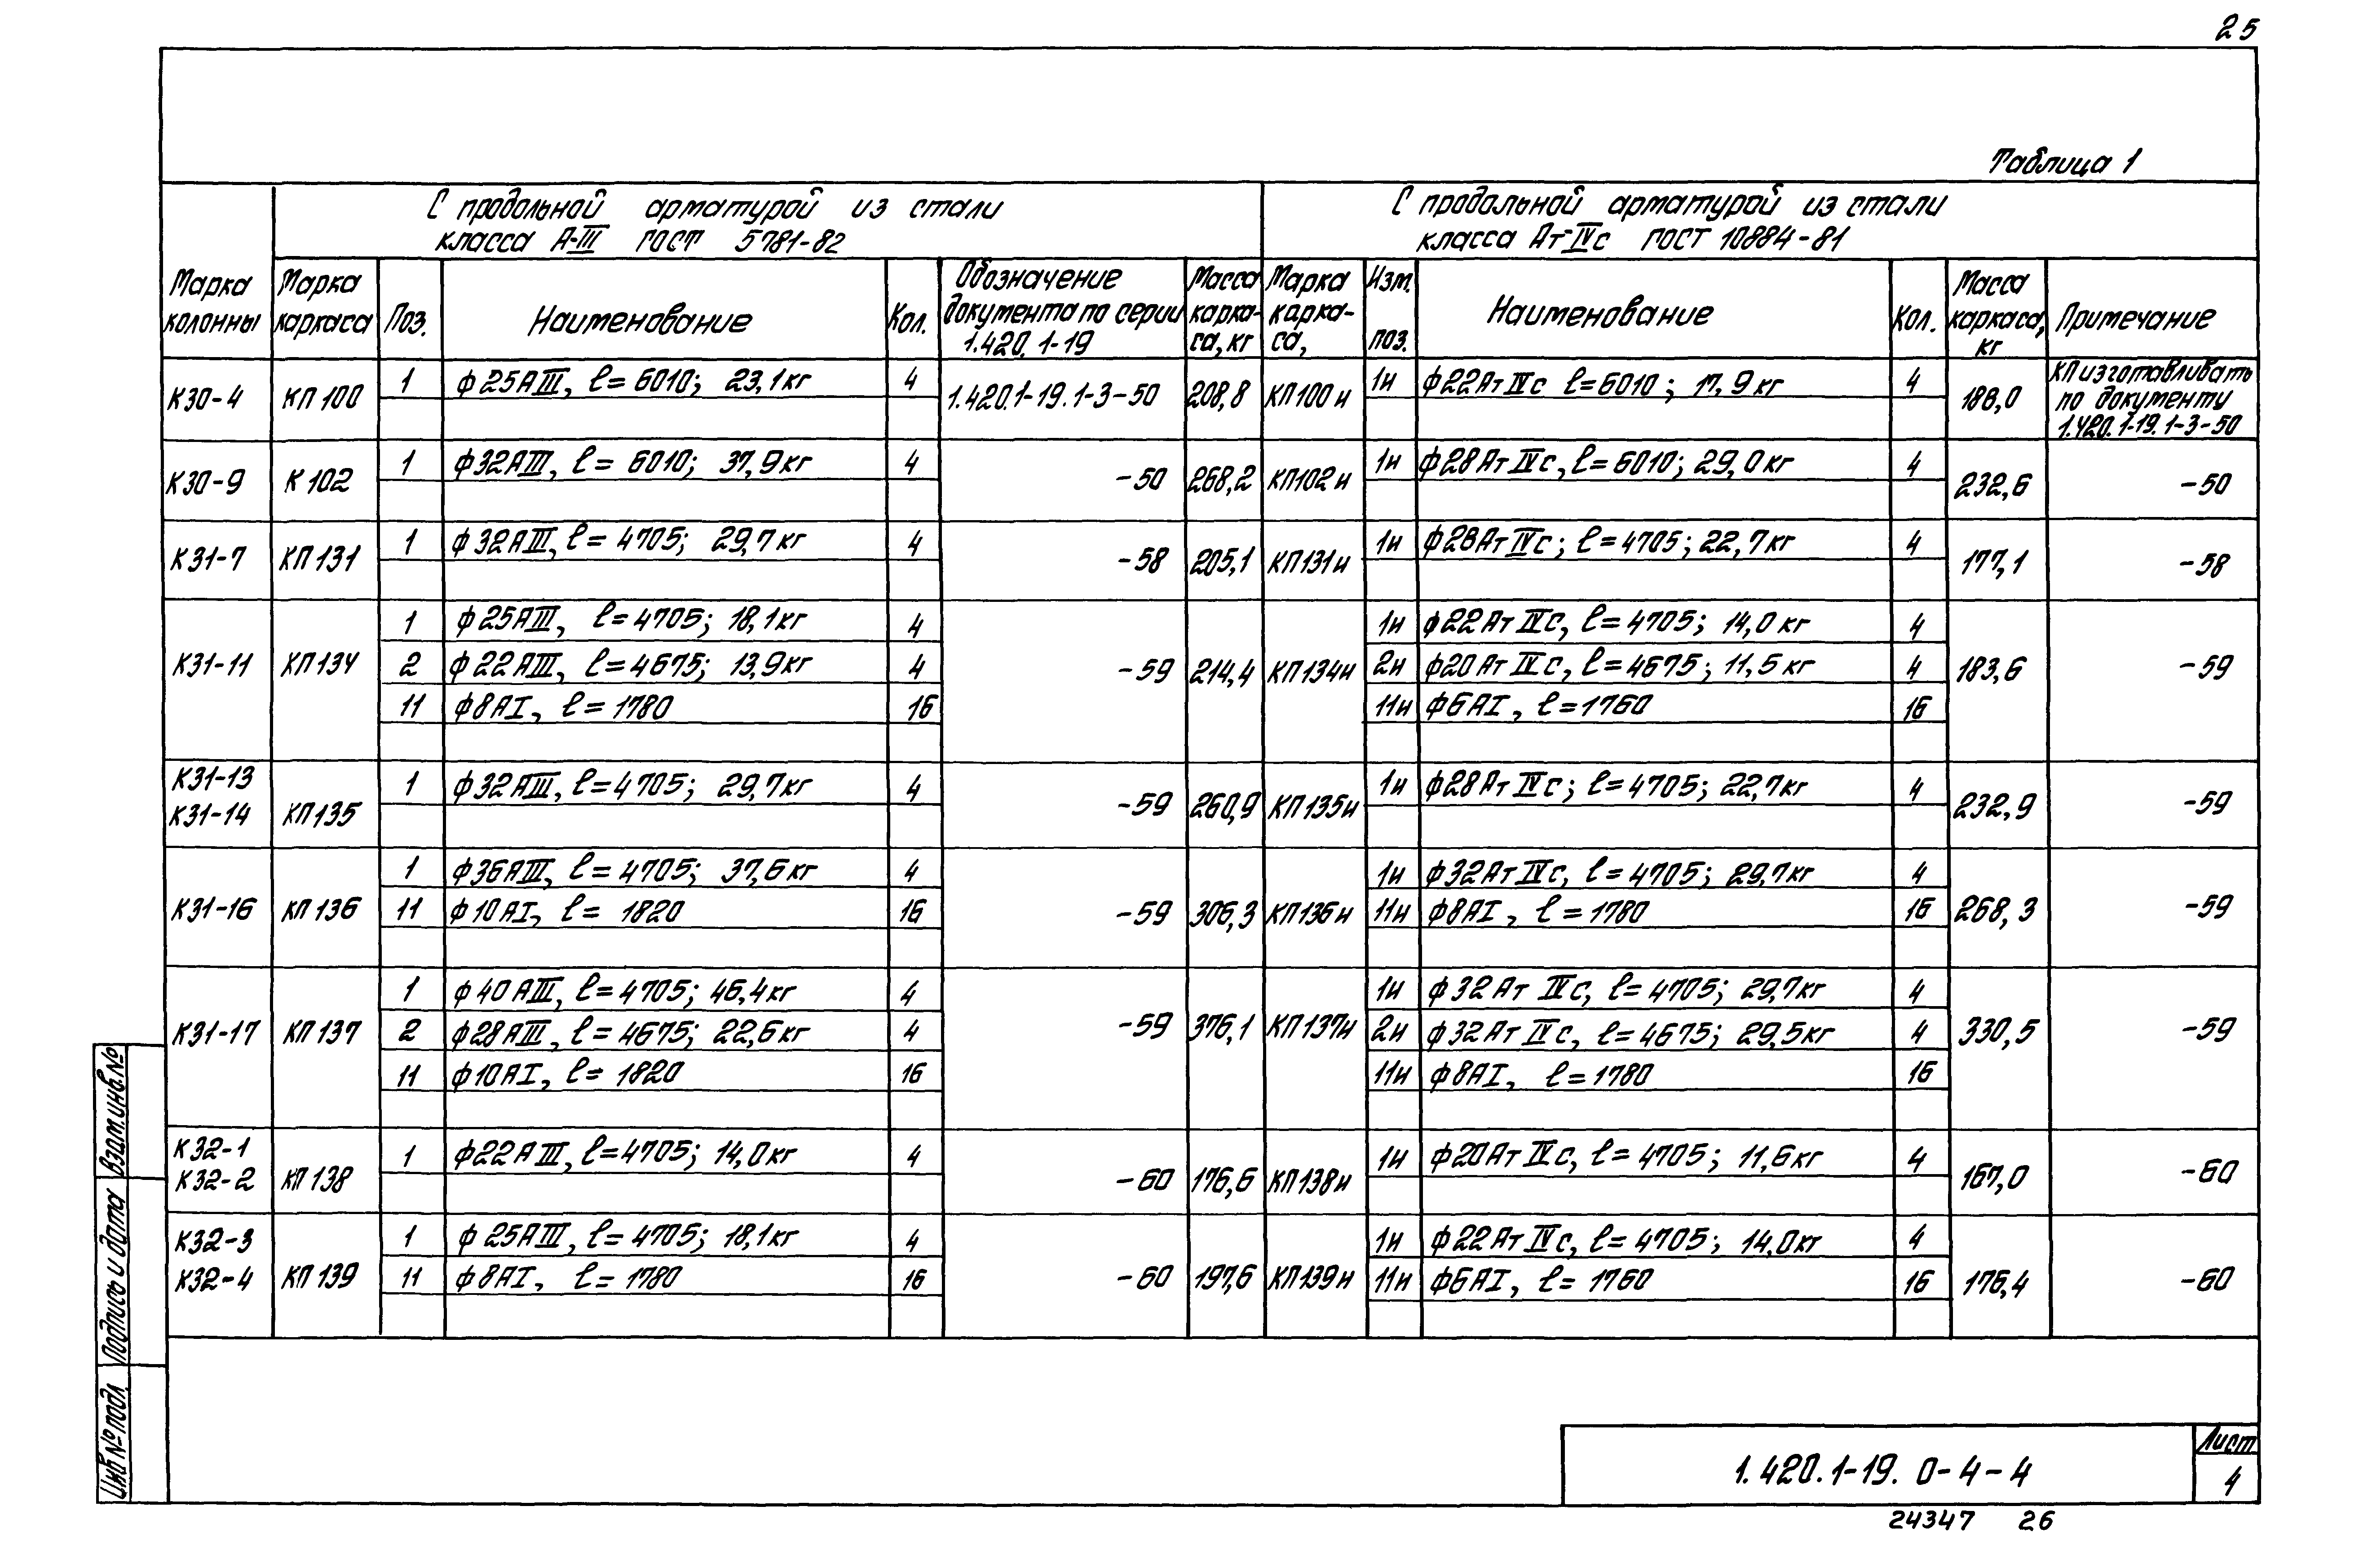 25
Таблица 1
С продольной арматурой из стали класса А-III ГОСТ 5781-82
С продольной арматурой из стали класса Ат-IVс ГОСТ 10884-81
Марка колонны
Марка каркаса
Поз.
Наименование
Кол.
Обозначение документа по серии 1.420.1-19
Масса каркаса, кг
Марка каркаса,
Изм. поз.
Наименование
Кол.
Масса каркаса, кг
Примечание
К30-4 КП100 1 ф25АIII, ℓ=6010; 23,1кг 4 1.420.1-19.1-3-50 208,8 КП100и 1и ф22АтIVс ℓ=6010; 17,9кг 4 188,0 КП изготавливать по документу 1.420.1-19.1-3-50
К30-9 К102 1 ф32АIII, ℓ=6010; 37,9кг 4 -50 268,2 КП102и 1и ф28АтIVс, ℓ=6010; 29,0кг 4 232,6 -50
К31-7 КП131 1 ф32АIII, ℓ=4705; 29,7кг 4 -58 205,1 КП131и 1и ф28АтIVс; ℓ=4705; 22,7кг 4 177,1 -58
К31-11 КП134 1 ф25АIII, ℓ=4705; 18,1кг 4 -59 214,4 КП134и 1и ф22АтIVс, ℓ=4705; 14,0кг 4 183,6 -59
2 ф22АIII, ℓ=4675; 13,9кг 4 2и ф20АтIVс, ℓ=4675; 11,5кг 4
11 ф8АI, ℓ=1780 16 11и ф6АI, ℓ=1760 16
К31-13
К31-14 КП135 1 ф32АIII, ℓ=4705; 29,7кг 4 -59 260,9 КП135и 1и ф28АтIVс; ℓ=4705; 22,7кг 4 232,9 -59
К31-16 КП136 1 ф36АIII, ℓ=4705; 37,6кг 4 -59 306,3 КП136и 1и ф32АтIVс, ℓ=4705; 29,7кг 4 268,3 -59
11 ф10АI, ℓ=1820 16 11и ф8АI, ℓ=1780 16
К31-17 КП137 1 ф40АIII, ℓ=4705; 46,4кг 4 -59 376,1 КП137и 1и ф32АтIVс, ℓ=4705; 29,7кг 4 330,5 -59
2 ф28АIII, ℓ=4675; 22,6кг 4 2и ф32АтIVс, ℓ=4675; 29,5кг 4
11 ф10АI, ℓ=1820 16 11и ф8АI, ℓ=1780 16
К32-1
К32-2 КП138 1 ф22АIII, ℓ=4705; 14,0кг 4 -60 176,6 КП138и 1и ф20АтIVс, ℓ=4705; 11,6кг 4 167,0 -60
К32-3
К32-4 КП139 1 ф25АIII, ℓ=4705; 18,1кг 4 -60 197,6 КП139и 1и ф22АтIVс, ℓ=4705; 14,0кг 4 176,4 -60
11 ф8АI, ℓ=1780 16 11и ф6АI, ℓ=1760 16
Взам.инв.№
Подпись и дата
Инв№подл.
1.420.1-19. 0-4-4
Лист
4
24347 26